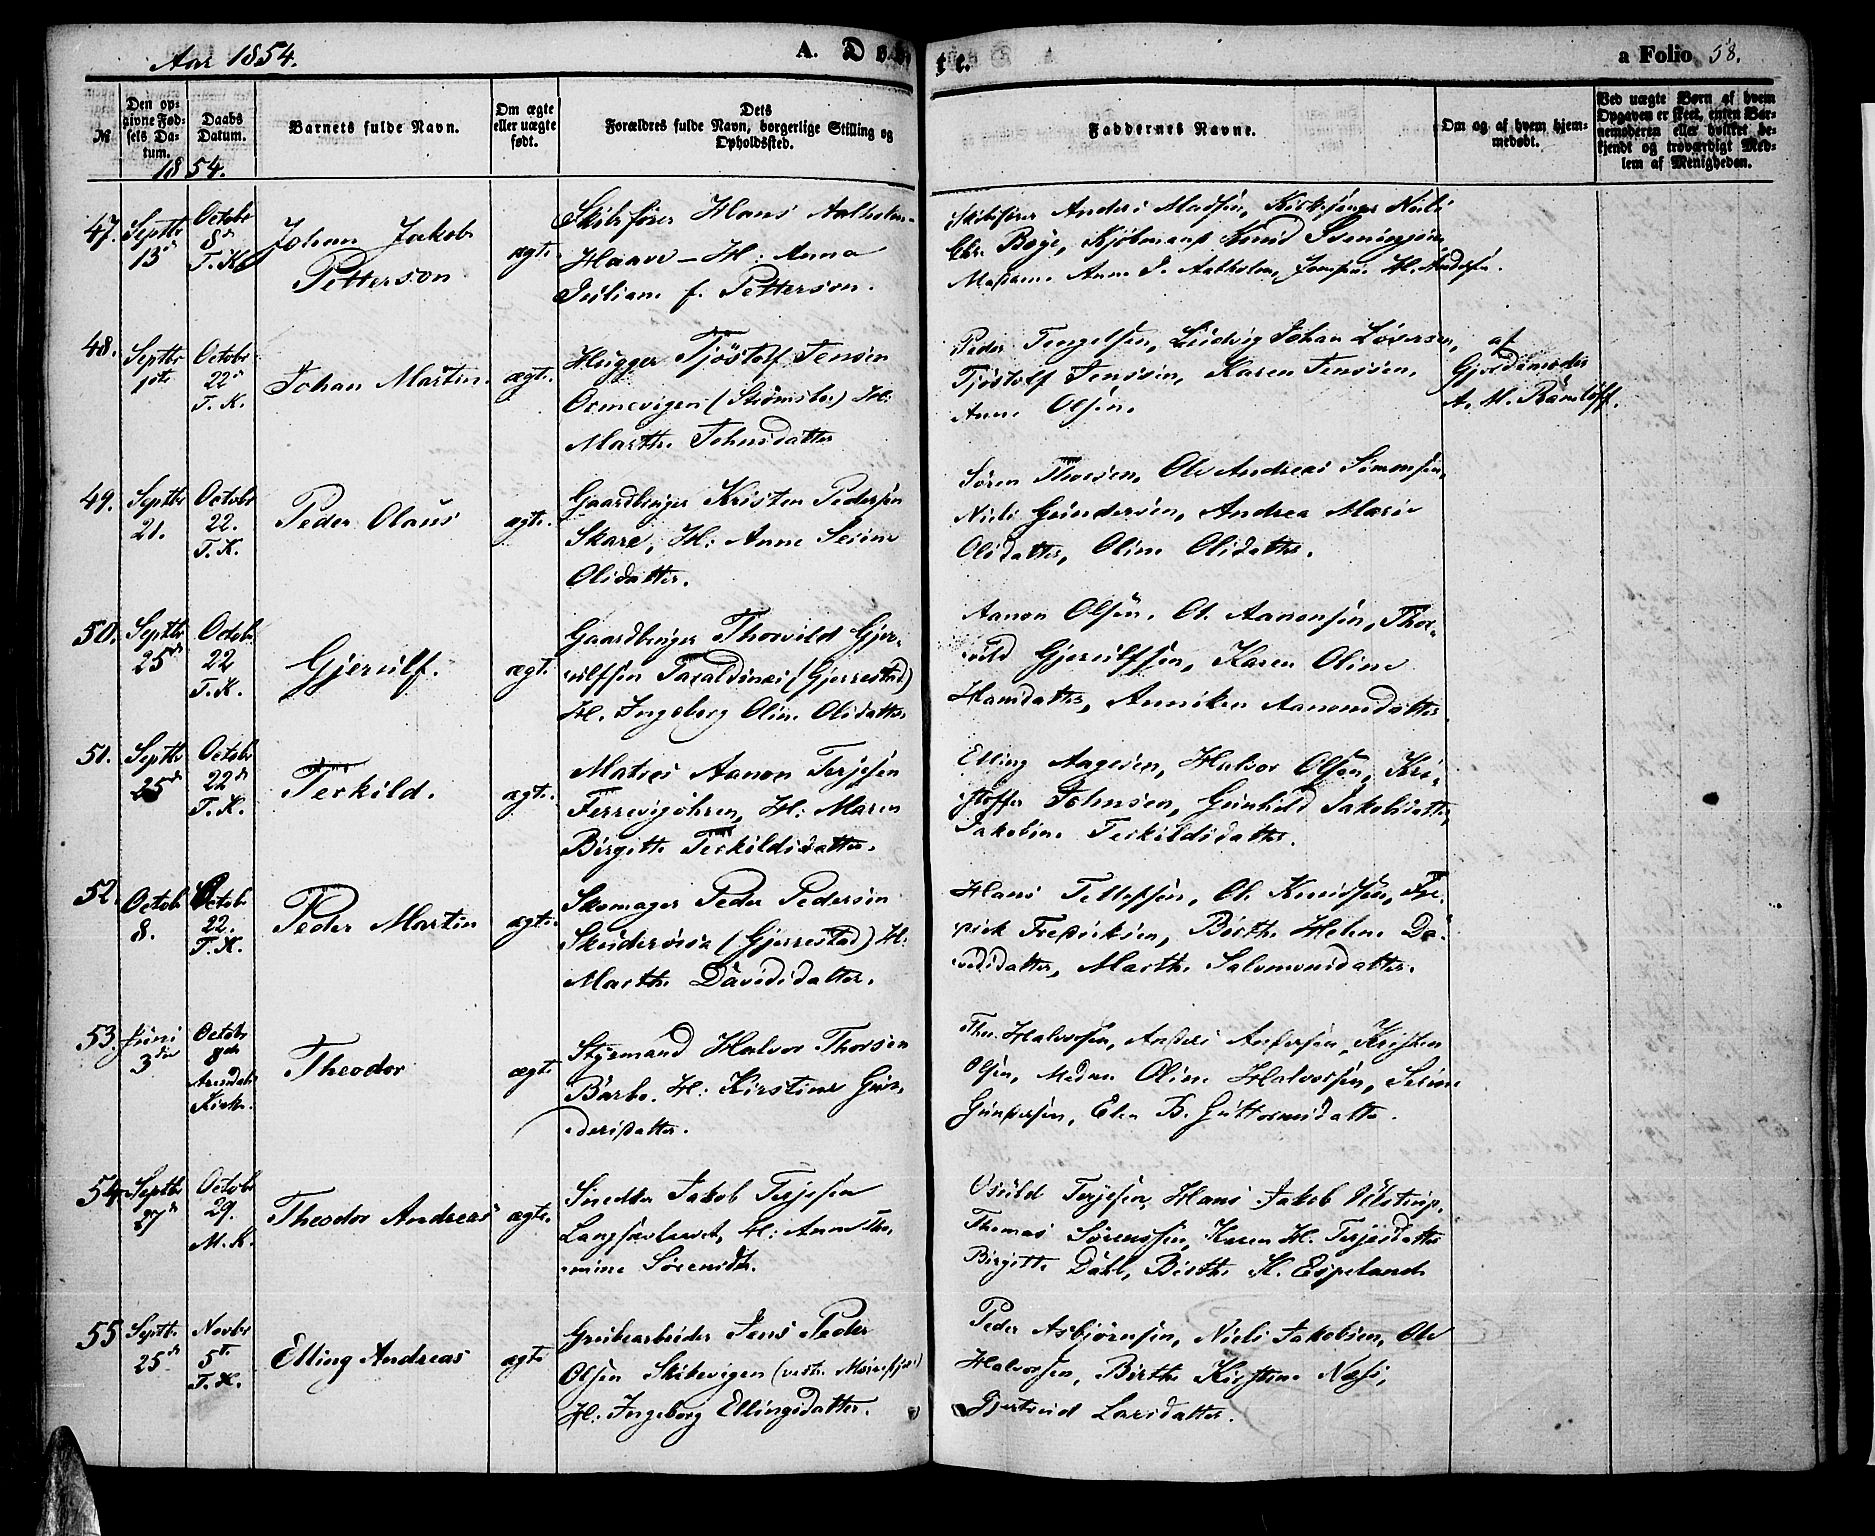 Aar 1854.
A. Døbte.
a Folio 58.
№
Den op-
givne Fød-
sels Da-
tum.
Daabs
Datum.
1854.
Barnets fulde Navn.
Om ægte
eller uægte
født.
Dets
Forældres fulde Navn, borgerlige Stilling og
Opholdssted.
Faddernes Navne.
Om og af hvem hjem-
medøbt.
Ved uægte Børn af hvem
Opgaven er skeet, enten Bar-
nemoderen eller hvilket be-
kjendt og troværdigt Med-
lem af Menigheden.
47.
Septbr
13de
Octobr
8de
T. K.
Johan Jakob
Petterson
ægte.
Skibsfører Hans Aalholm
Haave – H: Anna
Juliane f. Petterson.
Skibsfører Anders Madsen, Kirkesanger Niels
Chr. Boye, Kjøbmand Knud Svenningsen,
Madame Anne J. Aalholm, Jomfru H. Andersen.
48.
Septbr
1ste
Octobr
22de
T. K.
Johan Martin.
ægte.
Hugger Tjøstolf Jensen
Ormevigen (Strømsbo) H:
Marthe Johnsdatter
Peder Tengelsen, Ludvig Johan Iversen,
Tjøstolf Jenssen, Karen Jenssen,
Anne Olsen.
af
Gjordemoder
A. M. Ramløff.
49.
Septbr
21.
Octobr
22.
T. K.
Peder Olaus
ægte.
Gaardbruger Kristen Pedersen
Skare, H: Anne Serine
Olsdatter.
Søren Thorsen, Ole Andreas Simonsen,
Niels Gundersen, Andrea Marie
Olsdatter, Oline Olsdatter.
50.
Septbr
25de
Octobr
22
T. K.
Gjerulf.
ægte.
Gaardbruger Thorvild Gjer-
ulfsen Taraldsnes (Gjerrestad)
H. Ingeborg Oline Olsdatter
Aanon Olsen, Ole Aanonsen, Thor-
vild Gjerulfsen, Karen Oline
Hansdatter, Anniken Aanonsdatter
51.
Septbr
25de
Octobr
22de
T. K.
Terkild.
ægte.
Matros Aanon Terjesen
Ferrevigøhren, H: Maren
Birgitte Terkildsdatter.
Elling Aagesen, Halvor Olsen, Kri-
stoffer Johnsen, Gunhild Jakobsdatter,
Jakobine Terkildsdatter.
52.
Octobr
8.
Octobr
22.
T. K.
Peder Martin
ægte.
Skomager Peder Pedersen
Skudervier (Gjerrestad) H:
Marthe Davidsdatter.
Hans Tellefsen, Ole Knudsen, Fre-
drick Fredricksen, Birthe Helene Da-
vidsdatter, Marthe Salomonsdatter.
53.
Juni
3die
Octobr
8de
Arendals
Kirke.
Theodor
ægte
Styrmand Halvor Thorsen
Barbo. H: Kirstine Gun-
dersdatter.
Thor Halvorsen, Anders Andersen, Kristen
Olsen, Madm. Oline Halvorsen, Serine
Gundersen, Elen B. Guttormsdatter.
54.
Septbr
27de
Octobr
29.
M. K.
Theodor Andreas
ægte.
Snedker Jakob Terjesen
Langsævheiet, H: Anne Tho-
mine Sørensdtr.
Osuld Terjesen, Hans Jakob Ulstrup,
Thomas Sørenssen, Karen H. Terjesdatter
Birgitte Dahl, Birthe K. Espeland
55
Septbr
25de
Novbr
5te
T. K.
Elling Andreas
ægte
Grubearbeider Jens Peder
Olsen Skibevigen (vestre Moiesfjer)
H: Ingeborg Ellingsdatter.
Peder Asbjørnsen, Niels Jakobsen, Ole
Halvorsen, Birthe Kirstine Næss,
Gjertrud Larsdatter.